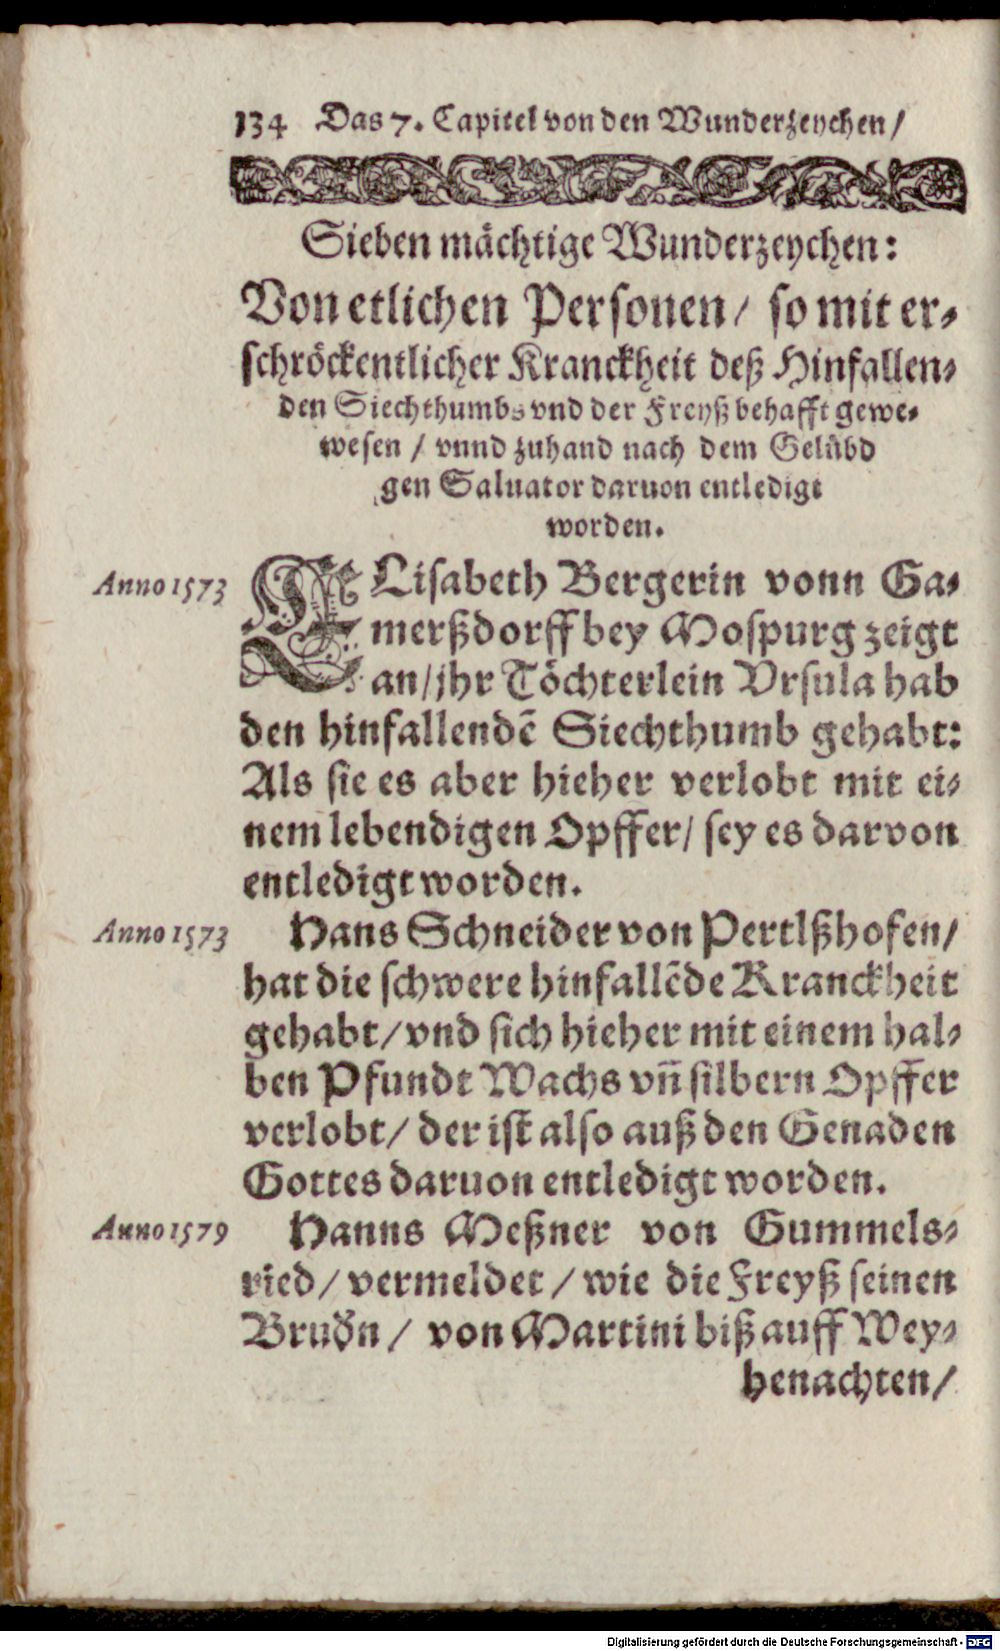 134 Das 7. Capitel von den Wunderzeychen /
Sieben mächtige Wunderzeychen:
Von etlichen Personen / so mit er⸗
schröckentlicher Kranckheit deß Hinfallen⸗
den Siechthumbs vnd der Freyß behafft gewe⸗
wesen / vnnd zuhand nach dem Gelübd
gen Saluator daruon entledigt
worden.
Anno 1573 ELisabeth Bergerin vonn Ga⸗
merßdorff bey Mospurg zeigt
an / jhr Töchterlein Vrsula hab
den hinfallendẽ Siechthumb gehabt:
Als sie es aber hieher verlobt mit ei⸗
nem lebendigen Opffer / sey es darvon
entledigt worden.
Anno 1573 Hans Schneider von Pertlßhofen /
hat die schwere hinfallẽde Kranckheit
gehabt / vnd sich hieher mit einem hal⸗
ben Pfundt Wachs vñ silbern Opffer
verlobt / der ist also auß den Genaden
Gottes daruon entledigt worden.
Anno 1579 Hanns Meßner von Gummels⸗
ried / vermeldet / wie die Freyß seinen
Brudn / von Martini biß auff Wey⸗
henachten /
Digitalisierung gefördert durch die Deutsche Forschungsgemeinschaft - DFG